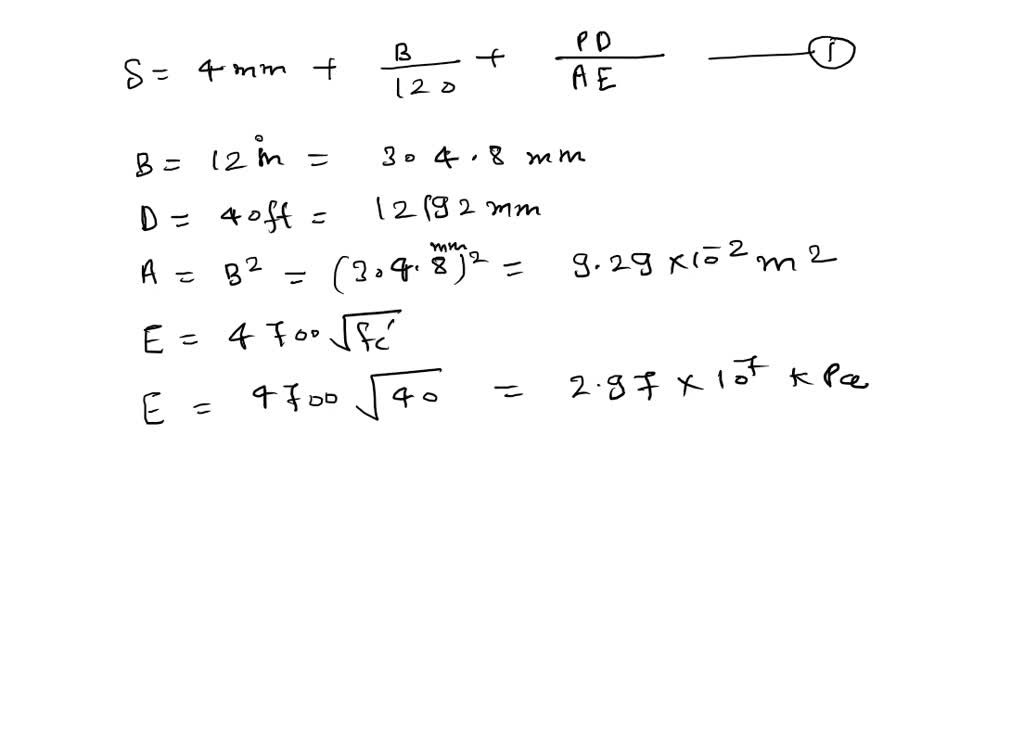 S = 4mm + B/120 + PD/AE ——— ①
B = 12 in = 304.8 mm
D = 40ft = 12192 mm
A = B² = (304.8 mm)² = 9.29 × 10⁻² m²
E = 4700 √fc'
E = 4700 √40 = 2.97 × 10⁷ kPa